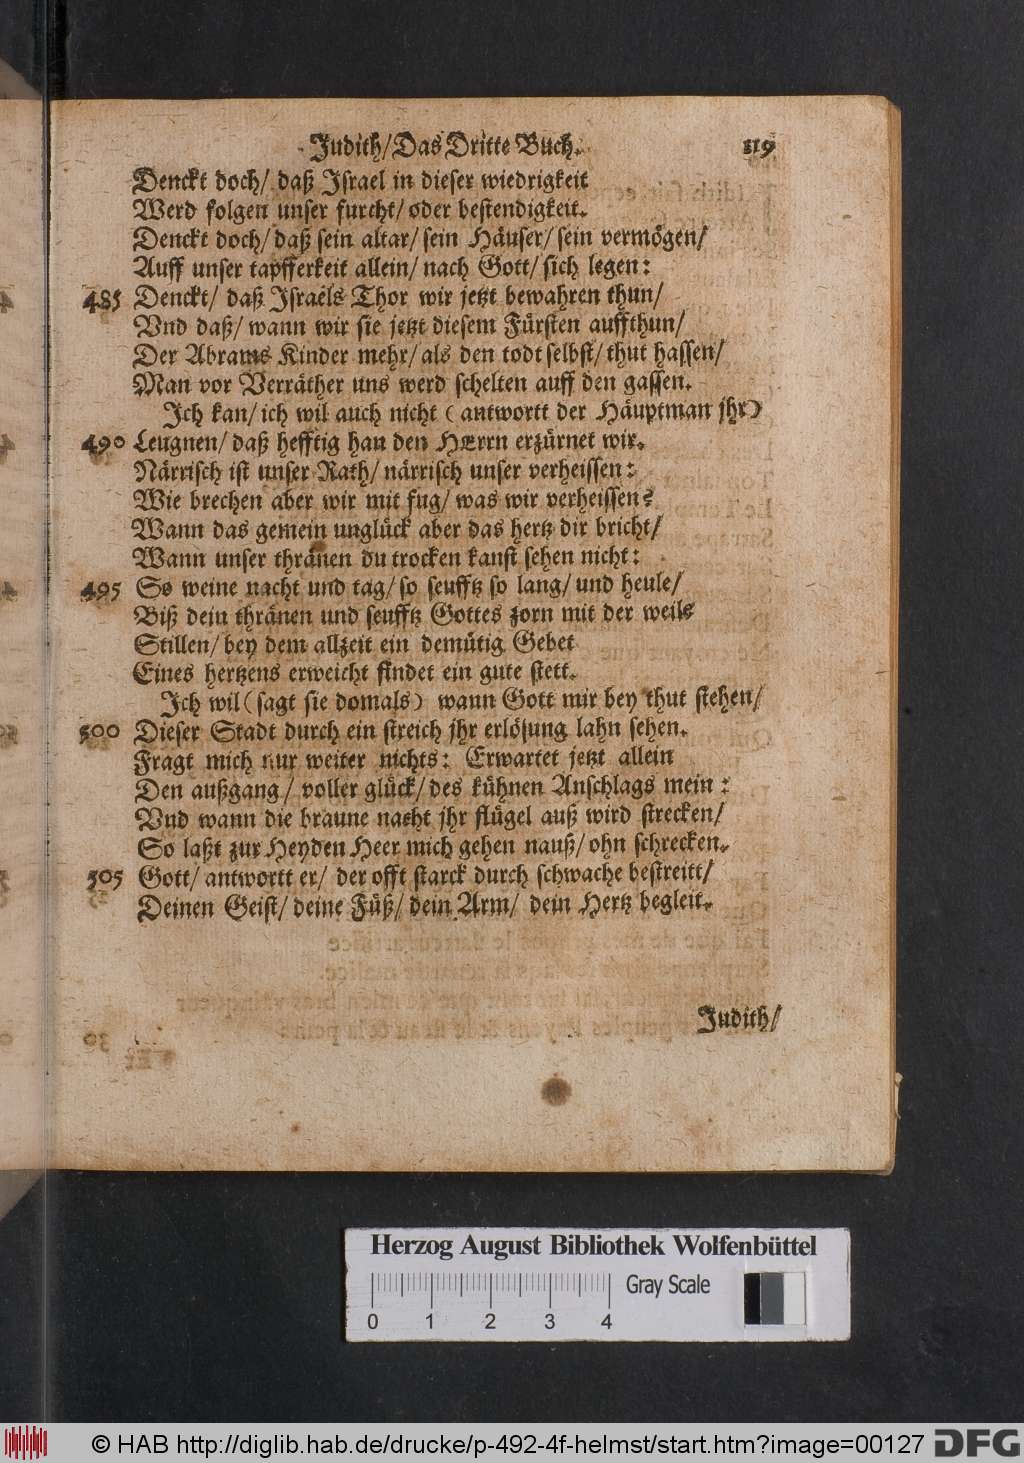 Judith/Das Dritte Buch. 119
Denckt doch/ daß Israel in dieser wiedrigkeit
Werd folgen unser furcht/ oder bestendigkeit.
Denckt doch/ daß sein altar/ sein Häuser/ sein vermögen/
Auff unser tapfferkeit allein/ nach Gott/ sich legen:
485 Denckt/ daß Israels Thor wir jetzt bewahren thun/
Vnd daß/ wann wir sie jetzt diesem Fürsten auffthun/
Der Abrams Kinder mehr/ als den todt selbst/ thut hassen/
Man vor Verräther uns werd schelten auff den gassen.
Ich kan/ ich wil auch nicht (antwortt der Häuptman jhr)
490 Leugnen/ daß hefftig han den HErrn erzürnet wir.
Närrisch ist unser Rath/ närrisch unser verheissen:
Wie brechen aber wir mit fug/ was wir verheissen?
Wann das gemein unglück aber das hertz dir bricht/
Wann unser thränen du trocken kanst sehen nicht:
495 So weine nacht und tag/ so seufftz so lang/ und heule/
Biß dein thränen und seufftz Gottes zorn mit der weile
Stillen/ bey dem allzeit ein demütig Gebet
Eines hertzens erweicht findet ein gute stett.
Ich wil (sagt sie domals) wann Gott mir bey thut stehen/
500 Dieser Stadt durch ein streich jhr erlösung lahn sehen.
Fragt mich nur weiter nichts: Erwartet jetzt allein
Den außgang/ voller glück/ des kühnen Anschlags mein:
Vnd wann die braune nacht jhr flügel auß wird strecken/
So laßt zur Heyden Heer mich gehen nauß/ ohn schrecken.
505 Gott/ antwortt er/ der offt starck durch schwache bestreitt/
Deinen Geist/ deine Füß/ dein Arm/ dein Hertz begleit.
Judith/
Herzog August Bibliothek Wolfenbüttel
Gray Scale
0 1 2 3 4
© HAB http://diglib.hab.de/drucke/p-492-4f-helmst/start.htm?image=00127
DFG